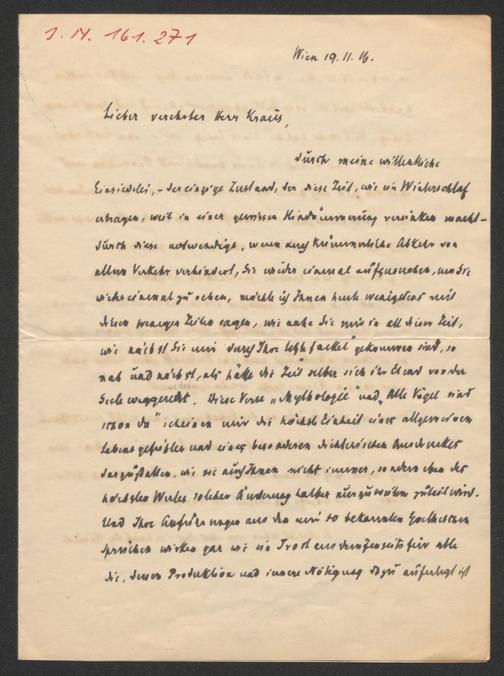 J. N. 161.271
Wien 19. 11. 16.
Lieber verehrter Herr Kraus,
Durch meine willentliche
Einsiedelei, – der einzige Zustand, der diese Zeit, wie ein Winterschlaf
ertragen, weil in einer gewissen versinken macht –
durch diese notwendige, wenn auch Abkehr von
allem Verkehr verhindert, Sie wieder einmal aufzusuchen, um Sie
wieder einmal zu sehen, möchte ich Ihnen heute wenigstens mit
diesen wenigen Zeilen sagen, wie nahe Sie mir in all dieser Zeit,
wie nächst Sie mir durch Ihre letzte „Fackel" gekommen sind, so
nah und nächst, als hätte die Zeit selber sich ihr Elend von der
Seele weggeredet. Diese Verse „Mythologie" und „Alle Vögel sind
schon da" scheinen mir die höchste Einheit eines allgemeinen
Lebensgefühles und eines besonderen dichterischen Ausdruckes
darzustellen, wie sie auch Ihnen nicht immer, sondern eben des
höchsten Wertes solcher Änderung halber nur zuteil wird.
Und Ihre Anführungen aus den mir so bekannten Goetheschen
Sprüchen wirken gar wie ein Trost aus dem Jenseits für alle
die, denen Produktion und innere Nötigung dazu auferlegt ist